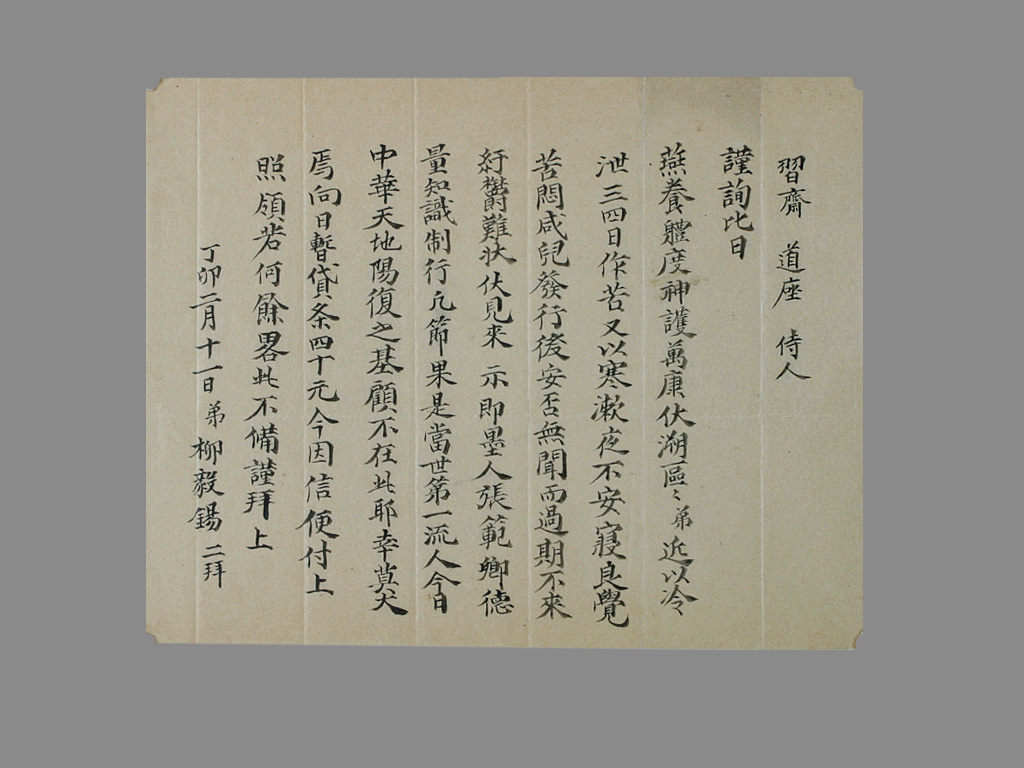 習齋 道座 侍人
謹詢比日
燕養軆度神護萬康伏溯區〻弟近以冷
泄三四日作苦又以寒漱夜不安寢良覺
苦悶咸兒發行後安否無聞而過期不來
紆欝難狀伏見來 示即墨人張範卿德
量知識制行凡節果是當世第一流人今日
中華天地陽復之基顧不在此耶幸莫大
焉向日暫貸条四十元今因信便付上
照領若何餘畧此不備謹拜上
丁卯二月十一日 弟 柳毅錫 二拜